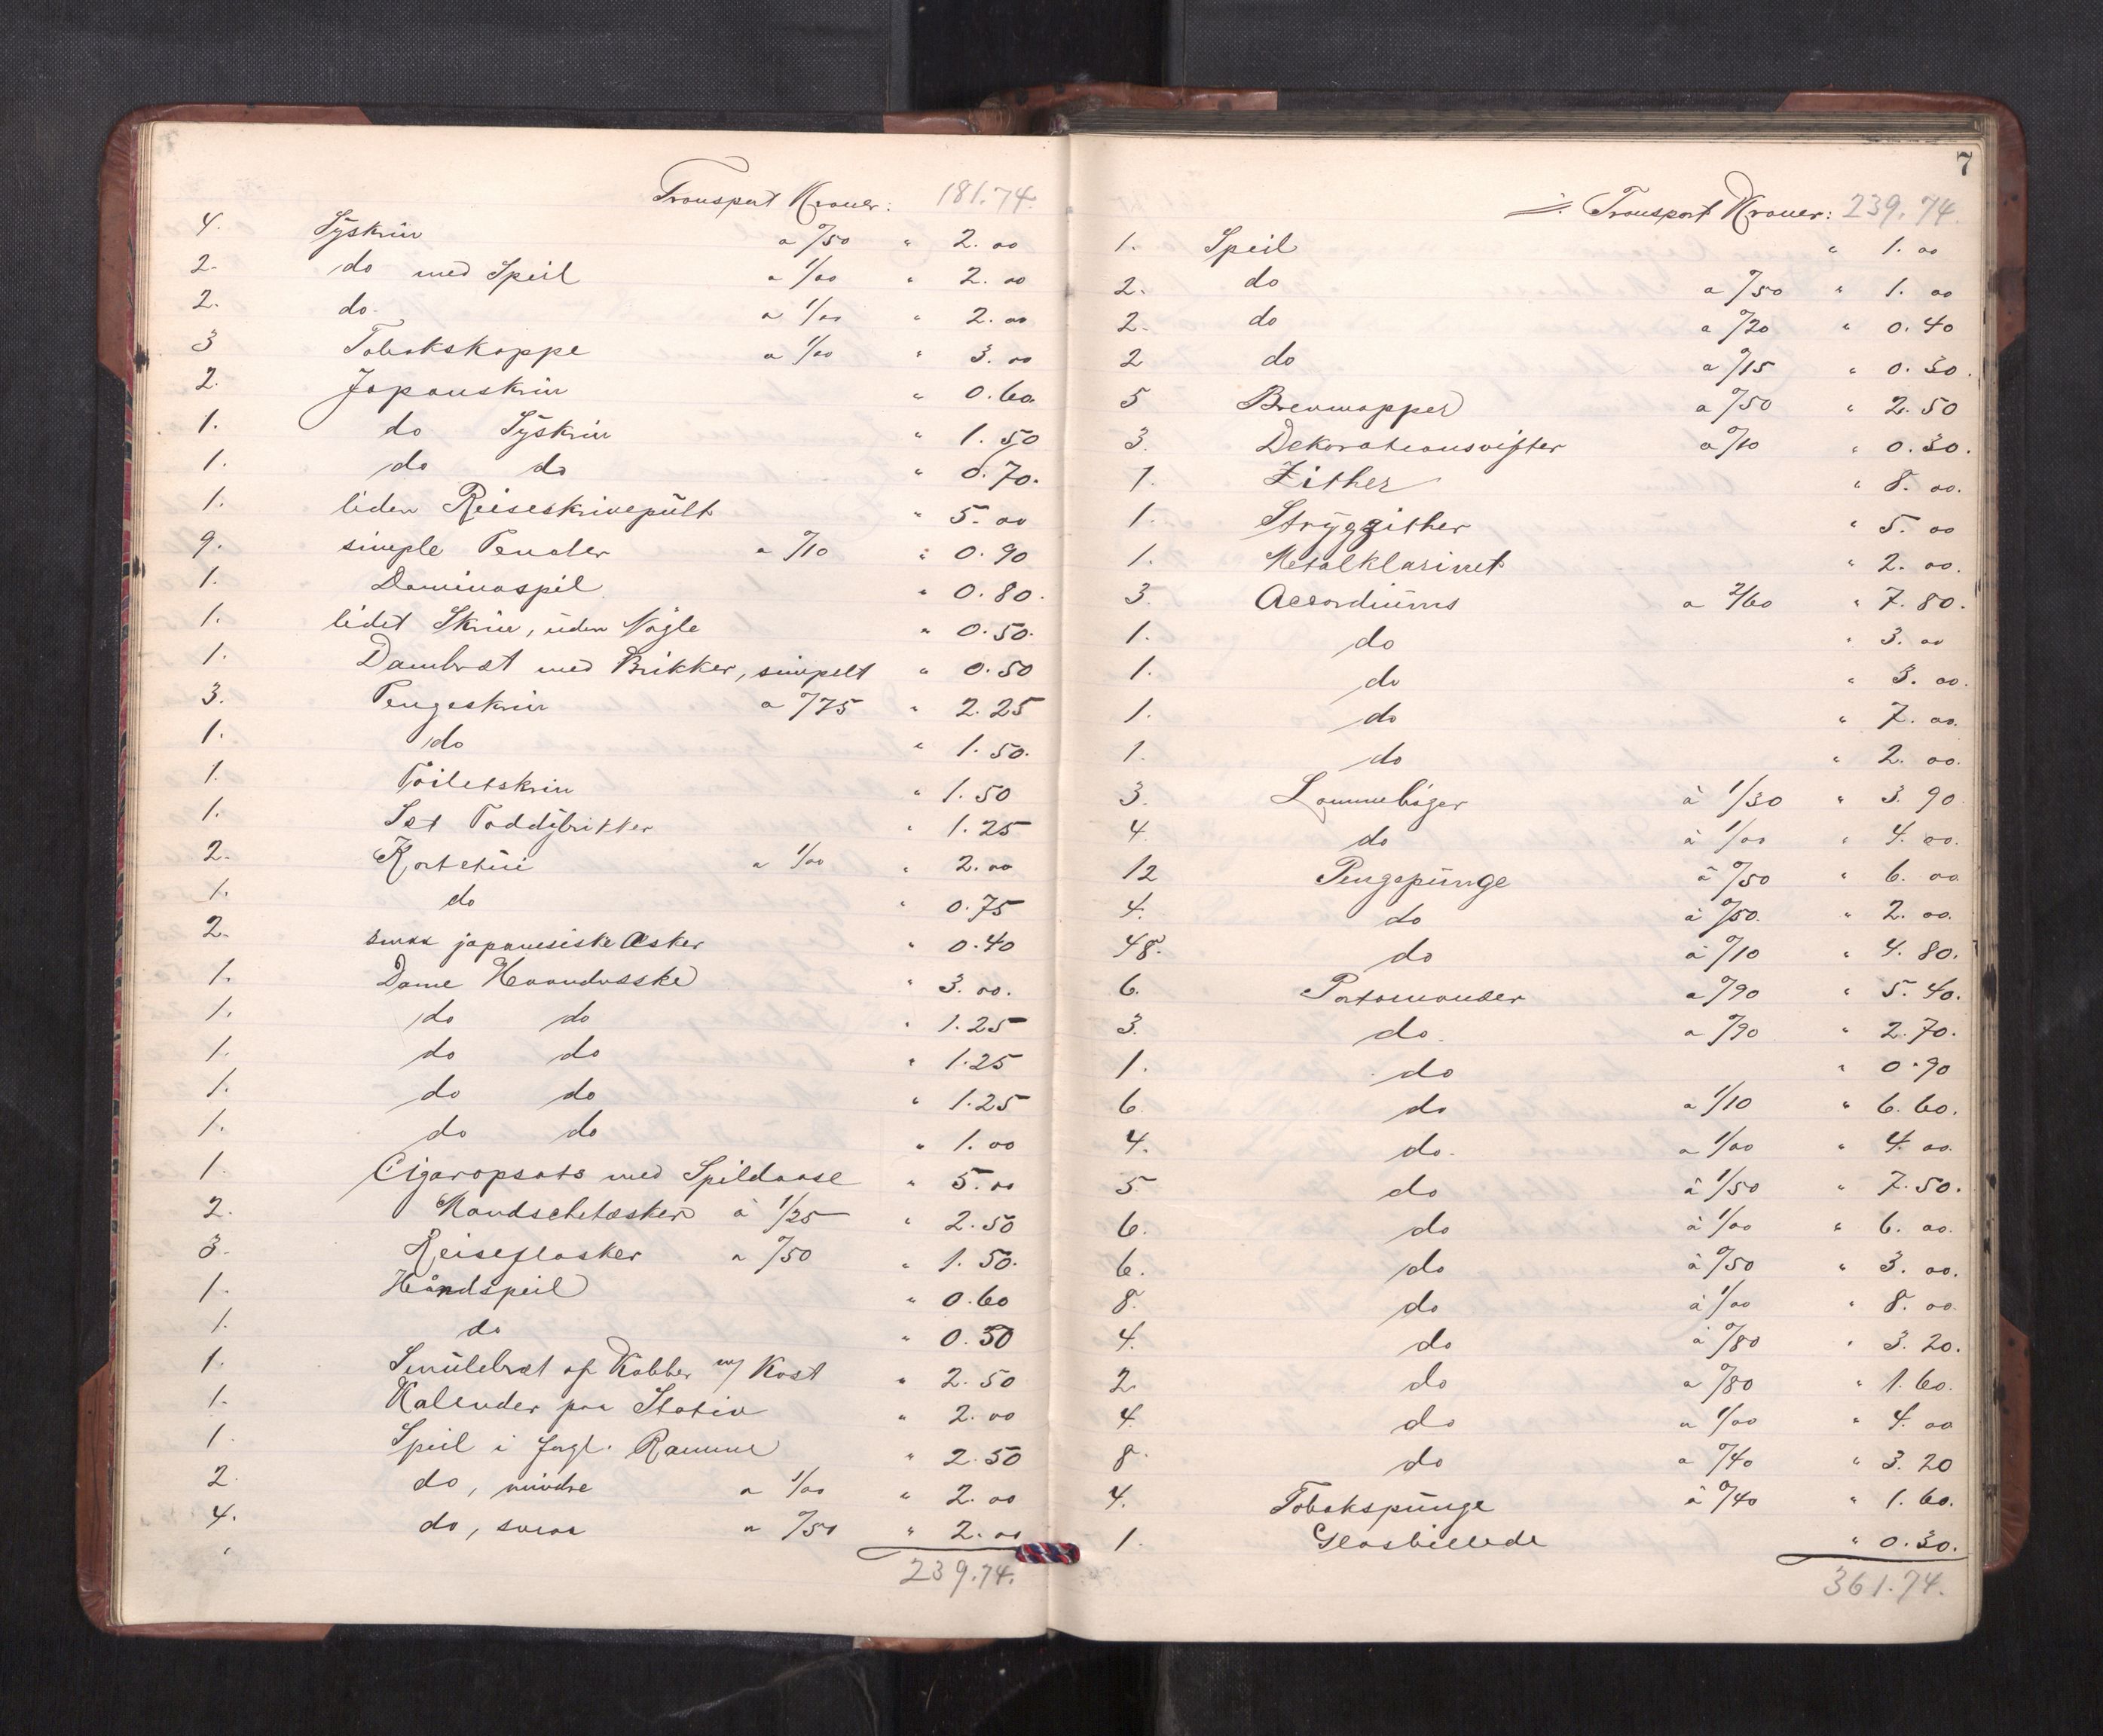 Transport Kroner: 181.74.
4. Syskrin a 0/50 " 2.00
2. do med Speil a 1/00 " 2.00
2. do. a 1/00 " 2.00
3 Tobakskoppe a 1/00 " 3.00
2. Japanskrin " 0.60
1. do Syskrin " 1.50
1. do do " 0.70.
1. liden Reiseskrivepült " 5.00
9. simple Penaler a 0/10 " 0.90
1. Dominospil " 0.80.
1. lidet Skrin, üden Nøgle " 0.50.
1. Dambret med Brikker, simpelt " 0.50
3. Pengeskrin a 0/75 " 2.25
1. do " 1.50.
1. Toiletskrin " 1.50
1. Set Toddybrikker " 1.25
2. Kortetüi a 1/00 " 2.00
1. do " 0.75
2. smaa japanesiske Æsker " 0.40
1. Dame Haandvæske " 3.00.
1. do do " 1.25
1. do do " 1.25
1. do do " 1.25
1. do do " 1.00
1. Cigaropsats med Spildaase " 5.00
2. Mandschetæsker à 1/25 " 2.50
3. Reiseflasker a 0/50 " 1.50.
1. Håndspeil " 0.60
1. do " 0.50
1. Smülebret af Kobber m/ Kost " 2.50
1. Kalender paa Stativ " 2.00
1. Speil i forgl. Ramme " 2.50
2 do, mindre a 1/00 " 2.00
4. do, smaa a 0/50 " 2.00
239.74.
7
Transport Kroner: 239.74.
1. Speil " 1.00
2. do a 0/50 " 1.00
2. do a 0/20 " 0.40
2 do a 0/15 " 0.30.
5 Brevmapper a 0/50 " 2.50
3. Dekorationsvifter a 0/10 " 0.30.
1. Zither " 8.00.
1. Strygzither " 5.00
1. Metalklarinet " 2.00.
3. Accordiüms a 2/60 " 7.80.
1. do " 3.00
1. do " 3.00.
1. do " 7.00.
1. do " 2.00.
3. Lommebøger à 1/30 " 3.90
4. do à 1/00 " 4.00.
12 Pengepünge à 0/50 " 6.00
4. do à 0/50. " 2.00.
48. do à 0/10 " 4.80.
6. Portomonæer a 0/90 " 5.40.
3. do. a 0/90 " 2.70.
1. do " 0.90
6 do a 1/10 " 6.60.
4. do. a 1/00 " 4.00.
5 do à 1/50 " 7.50.
6. do à 1/00 " 6.00.
6. do à 0/50 " 3.00.
8. do à 1/00 " 8.00
4. do à 0/80 " 3.20.
2. do a 0/80 " 1.60.
4. do a 1/00 " 4.00
8. do a 0/40 " 3.20
4. Tobakspünge à 0/40 " 1.60.
1. Glasbillede " 0.30.
361.74.